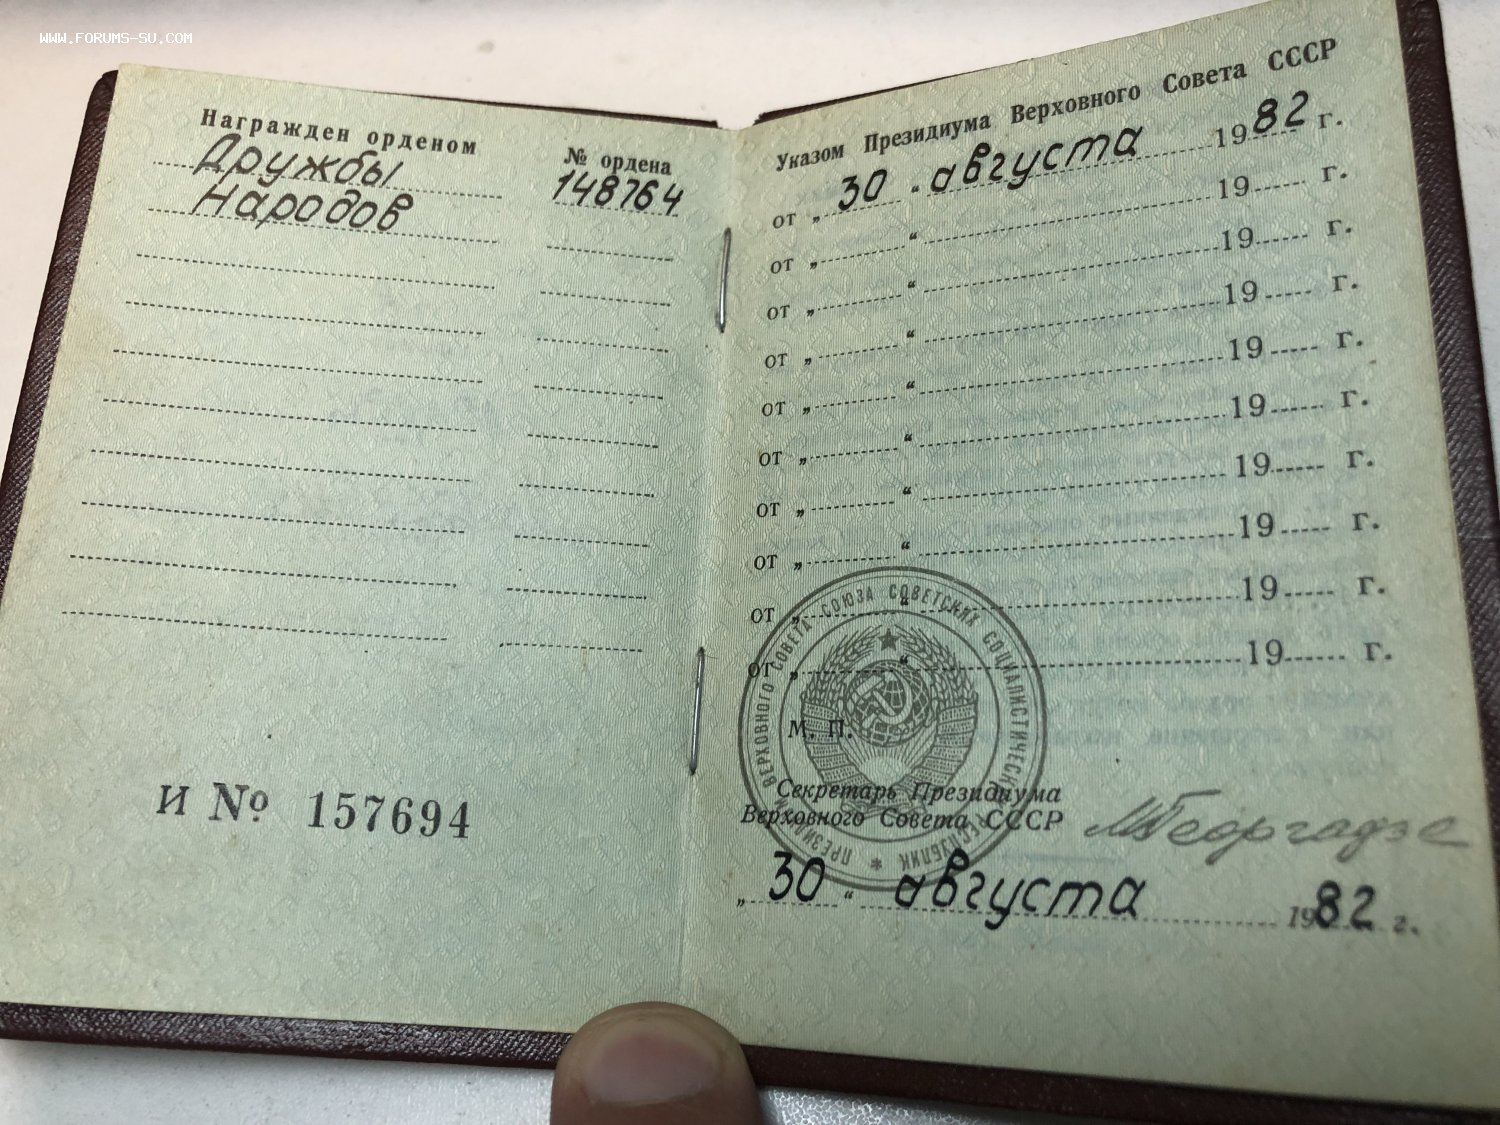 WWW.FORUMS-SU.COM
Награжден орденом
№ ордена
Дружбы
148764
Народов
И № 157694
Указом Президиума Верховного Совета СССР
от „ 30 “ августа 1982 г.
от „ “ 19 г.
от „ “ 19 г.
от „ “ 19 г.
от „ “ 19 г.
от „ “ 19 г.
от „ “ 19 г.
от „ “ 19 г.
от „ “ 19 г.
от „ “ 19 г.
ПРЕЗИДИУМ ВЕРХОВНОГО СОВЕТА СОЮЗА СОВЕТСКИХ СОЦИАЛИСТИЧЕСКИХ РЕСПУБЛИК
М. П.
Секретарь Президиума
Верховного Совета СССР
МГеоргадзе
„ 30 “ августа 1982 г.